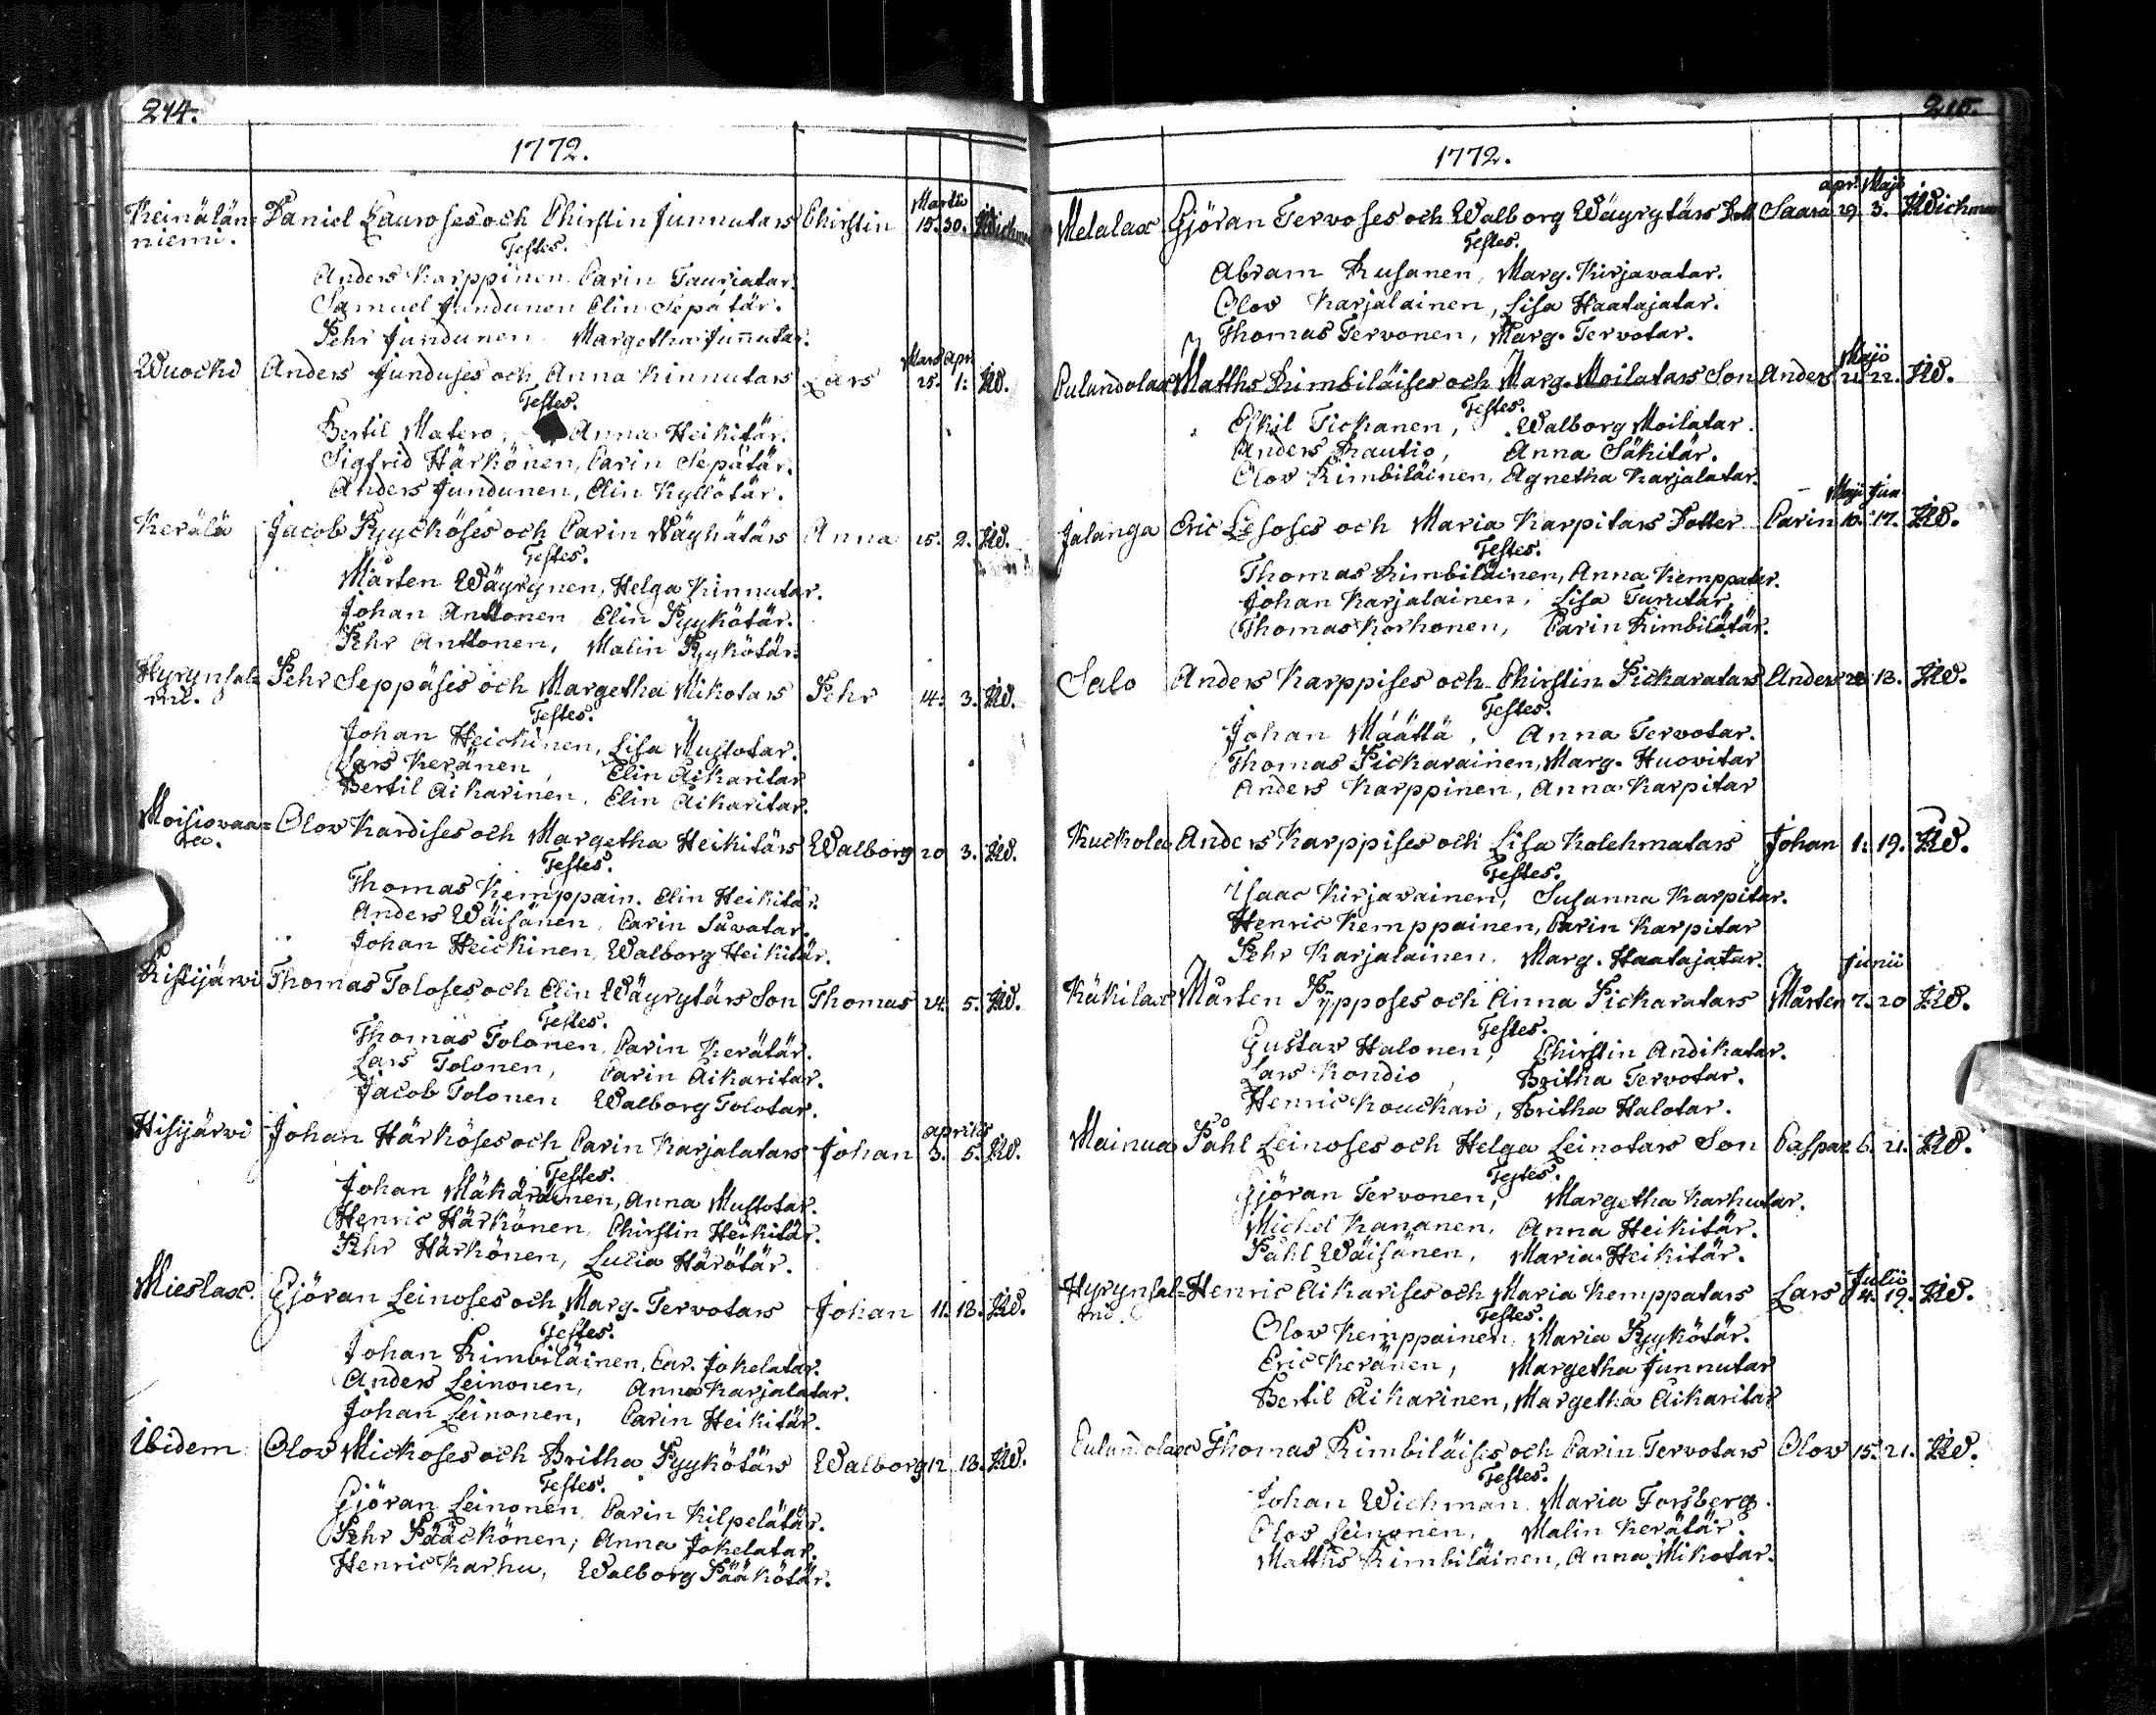 214.
1772.
Martii
Keinälän= Daniel Lauroses och Chirstin Junnutars Chirstin 15. 30. JWichman
niemi.
Testes.
Anders Karppinen, Carin Tauriatar.
Samuel Jundunen Elin Sepätär.
Pehr Jundunen Margetha Junnutar.
Mars apr
Wuocki Anders Junduses och Anna Kinnutars Lars 25. 1. JW.
Testes.
Bertil Matero, Anna Heikitär.
Sigfrid Härkönen, Carin Sepätär.
Anders Jundunen, Elin Kyllötär.
Kerälä Jacob Pyycköses och Carin Väyhätärs Anna 25. 2. JW.
Testes.
Mårten Wäyrynen, Helga Kinnutar.
Johan Anttonen Elin Pyykötär.
Pehr Anttonen, Malin Pyykötär.
Hyrynsal= Pehr Seppäses och Margetha Mikotars Pehr 14. 3. JW.
mi.
Testes.
Johan Heickinen, Lisa Mustotar.
Lars Keränen, Elin Aikaritar
Bertil Aikarinen, Elin Aikaritar.
Moisiovaa= Olov Kardises och Margetha Heikitärs Walborg 20 3. JW.
ra.
Testes.
Thomas Kemppain. Elin Heikitär.
Anders Wäisänen, Carin Säwatar.
Johan Heickinen, Walborg Heikitär.
Ristijärvi Thomas Toloses och Elin Wäyrytärs Son Thomas 24. 5. JW.
Testes.
Thomas Tolonen, Carin Kerätär.
Lars Tolonen, Carin Aikaritar.
Jacob Tolonen Walborg Tolotar.
aprilis
Hisijärvi Johan Härköses och Carin Karjalatars Johan 3. 5. JW.
Testes.
Johan Mäkäräinen, Anna Mustotar.
Henric Härkönen, Chirstin Heikitär.
Pehr Härkönen, Lucia Härötär.
Mieslax. Gjöran Leinoses och Marg. Tervotars Johan 11. 12. JW.
Testes.
Johan Rimbiläinen, Car. Jokelatar.
Anders Leinonen, Anna Karjalatar.
Johan Leinonen, Carin Heikitär.
Ibidem Olov Mickoses och Britha Pyykötärs Walborg 12. 13. JW.
Testes.
Gjöran Leinonen, Carin Kilpelätär.
Pehr Pääckönen, Anna Jokelatar.
Henric Karhu, Walborg Pääkötär.
215.
1772.
apr. Maji
Melalax Gjöran Tervoses och Walborg Wäyrytärs Dott Saara 29. 3. JWichman
Testes.
Abram Rusanen, Marg. Kirjavatar.
Olov Karjalainen, Lisa Haatajatar.
Thomas Tervonen, Marg. Tervotar.
Maji
Culandolax Matths Rimbiläises och Marg. Moilatars Son Anders 21. 22. JW.
Testes.
Eskil Tickanen, Walborg Moilatar.
Anders Rautio, Anna Säkitär.
Olov Rimbiläinen, Agnetha Karjalatar.
Maji Jun
Jalanga Eric Lesoses och Maria Karpitars Dotter Carin 10. 17. JW.
Testes.
Thomas Rimbiläinen, Anna Kemppatar.
Johan Karjalainen, Lisa Turutar.
Thomas Korhonen, Carin Rimbilätär.
Salo Anders Karppises och Chirstin Pickaratars Anders 28. 13. JW.
Testes.
Johan Määttä, Anna Tervotar.
Thomas Pickarainen, Marg. Huovitar
Anders Karppinen, Anna Karpitar
Kuckola Anders Karppises och Lisa Kolehmatars Johan 1. 19. JW.
Testes.
Isaac Kirjavainen, Susanna Karpitar.
Henric Kemppainen, Carin Karpitar
Pehr Karjalainen, Marg. Haatajatar.
Junii
Käkilax Mårten Pypposes och Anna Pickaratars Mårten 7. 20 JW.
Testes.
Gustav Halonen, Chirstin Andikatar.
Lars Kondio, Britha Tervotar.
Henric Kouckari, Britha Halotar.
Mainua Påhl Leinoses och Helga Leinotars Son Caspar. 6. 21. JW.
Testes.
Gjöran Tervonen, Margetha Karhutar.
Michel Kananen, Anna Heikitär.
Påhl Wäisänen, Maria Heikitär.
Julii
Hyrynsal= Henric Aikarises och Maria Kemppatars Lars 4. 19. JW.
mi.
Testes.
Olov Kemppainen, Maria Pyykötär.
Eric Keränen, Margetha Junnutar
Bertil Aikarinen, Margetha Aikaritar
Culandolax Thomas Rimbiläises och Carin Tervotars Olov 15. 21. JW.
Testes.
Johan Wichman, Maria Forsberg.
Olov Leinonen, Malin Kerätär.
Matths Rimbiläinen, Anna Mikotar.